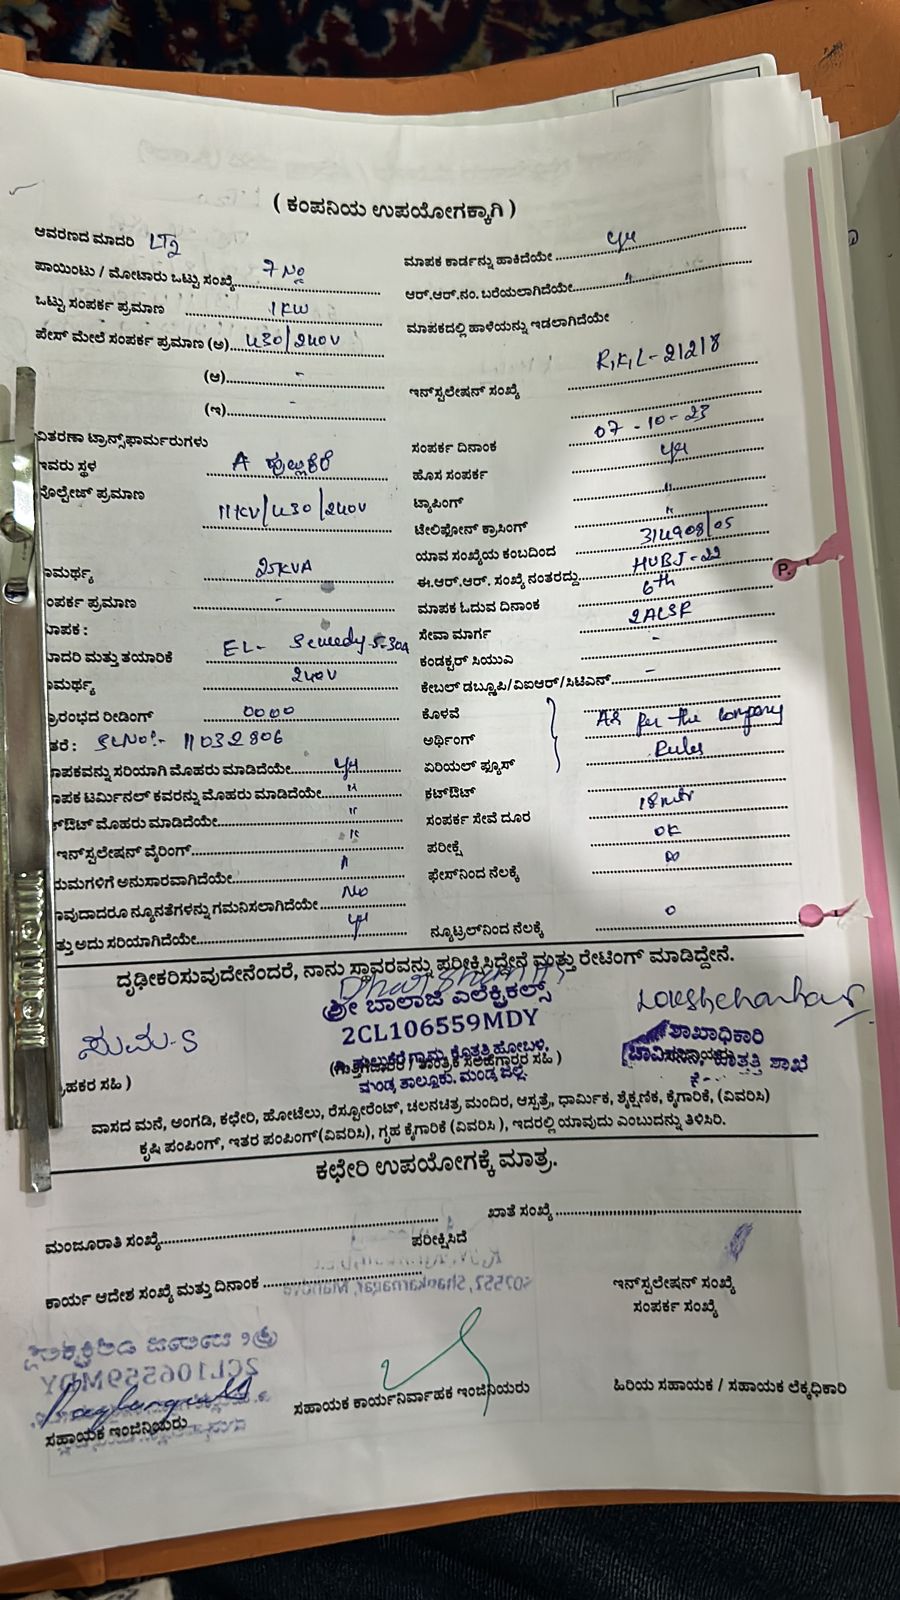 ( ಕಂಪನಿಯ ಉಪಯೋಗಕ್ಕಾಗಿ )
ಆವರಣದ ಮಾದರಿ LT2
ಪಾಯಿಂಟು / ಮೋಟಾರು ಒಟ್ಟು ಸಂಖ್ಯೆ 7 No
ಒಟ್ಟು ಸಂಪರ್ಕ ಪ್ರಮಾಣ 1KW
ಪೇಸ್ ಮೇಲೆ ಸಂಪರ್ಕ ಪ್ರಮಾಣ (ಅ) 430/240V
(ಆ) -
(ಇ) -
ವಿತರಣಾ ಟ್ರಾನ್ಸ್‌ಫಾರ್ಮರುಗಳು
ಇವರು ಸ್ಥಳ A ಹುಲ್ಲುಕೆರೆ
ವೋಲ್ಟೇಜ್ ಪ್ರಮಾಣ
11KV/430/240V
ಾಮರ್ಥ್ಯ 25KVA
ಂಪರ್ಕ ಪ್ರಮಾಣ -
ಾಪಕ :
ಾದರಿ ಮತ್ತು ತಯಾರಿಕೆ EL- 5-30A
ಾಮರ್ಥ್ಯ 240V
್ರಾರಂಭದ ರೀಡಿಂಗ್ 0000
ತರೆ : SLNo:- 11032806
ಾಪಕವನ್ನು ಸರಿಯಾಗಿ ಮೊಹರು ಮಾಡಿದೆಯೇ yes
ಾಪಕ ಟರ್ಮಿನಲ್ ಕವರನ್ನು ಮೊಹರು ಮಾಡಿದೆಯೇ "
ಕಟ್‌ಔಟ್ ಮೊಹರು ಮಾಡಿದೆಯೇ "
ಇನ್‌ಸ್ಟಲೇಷನ್ ವೈರಿಂಗ್ "
ಯಮಗಳಿಗೆ ಅನುಸಾರವಾಗಿದೆಯೇ "
ಾವುದಾದರೂ ನ್ಯೂನತೆಗಳನ್ನು ಗಮನಿಸಲಾಗಿದೆಯೇ No
ತ್ತು ಅದು ಸರಿಯಾಗಿದೆಯೇ yes
ಮಾಪಕ ಕಾರ್ಡನ್ನು ಹಾಕಿದೆಯೇ yes
ಆರ್.ಆರ್.ನಂ. ಬರೆಯಲಾಗಿದೆಯೇ "
ಮಾಪಕದಲ್ಲಿ ಹಾಳೆಯನ್ನು ಇಡಲಾಗಿದೆಯೇ
ಇನ್‌ಸ್ಟಲೇಷನ್ ಸಂಖ್ಯೆ R,K,L-21218
ಸಂಪರ್ಕ ದಿನಾಂಕ 07-10-23
ಹೊಸ ಸಂಪರ್ಕ yes
ಟ್ಯಾಪಿಂಗ್ "
ಟೆಲಿಫೋನ್ ಕ್ರಾಸಿಂಗ್ "
ಯಾವ ಸಂಖ್ಯೆಯ ಕಂಬದಿಂದ 314908/05
ಈ.ಆರ್.ಆರ್. ಸಂಖ್ಯೆ ನಂತರದ್ದು HUBJ-22
ಮಾಪಕ ಓದುವ ದಿನಾಂಕ 6th
ಸೇವಾ ಮಾರ್ಗ 2ACSR
ಕಂಡಕ್ಟರ್ ಸಿಯುವಿ -
ಕೇಬಲ್ ಡಬ್ಲ್ಯೂಪಿ/ವಿಐಆರ್/ಸಿಟಿಎಸ್ -
ಕೊಳವೆ As per the company
ಅರ್ಥಿಂಗ್ Rules
ಏರಿಯಲ್ ಫ್ಯೂಸ್
ಕಟ್‌ಔಟ್
ಸಂಪರ್ಕ ಸೇವೆ ದೂರ 18mtr
ಪರೀಕ್ಷೆ OK
ಫೇಸ್‌ನಿಂದ ನೆಲಕ್ಕೆ ∞
ನ್ಯೂಟ್ರಲ್‌ನಿಂದ ನೆಲಕ್ಕೆ 0
ದೃಢೀಕರಿಸುವುದೇನೆಂದರೆ, ನಾನು ಸ್ಥಾವರವನ್ನು ಪರೀಕ್ಷಿಸಿದ್ದೇನೆ ಮತ್ತು ರೇಟಿಂಗ್ ಮಾಡಿದ್ದೇನೆ.
ಸುಮ.S
್ರಾಹಕರ ಸಹಿ )
ಶ್ರೀ ಬಾಲಾಜಿ ಎಲೆಕ್ಟ್ರಿಕಲ್ಸ್
2CL106559MDY
ಹುಲುಕೆರೆ ಗ್ರಾಮ, ಕೊತ್ತತ್ತಿ ಹೋಬಳಿ,
(ಗುತ್ತಿಗೆದಾರರ / ತಾಂತ್ರಿಕ ಸಲಹೆಗಾರರ ಸಹಿ )
ಮಂಡ್ಯ ತಾಲ್ಲೂಕು, ಮಂಡ್ಯ ಜಿಲ್ಲೆ.
Lokshchankar
ಶಾಖಾಧಿಕಾರಿ
ಚಾವಿಸನಿನಿ, ಕೊತ್ತತ್ತಿ ಶಾಖೆ
ವಾಸದ ಮನೆ, ಅಂಗಡಿ, ಕಛೇರಿ, ಹೋಟೆಲು, ರೆಸ್ಟೋರೆಂಟ್, ಚಲನಚಿತ್ರ ಮಂದಿರ, ಆಸ್ಪತ್ರೆ, ಧಾರ್ಮಿಕ, ಶೈಕ್ಷಣಿಕ, ಕೈಗಾರಿಕೆ, (ವಿವರಿಸಿ)
ಕೃಷಿ ಪಂಪಿಂಗ್, ಇತರ ಪಂಪಿಂಗ್(ವಿವರಿಸಿ), ಗೃಹ ಕೈಗಾರಿಕೆ (ವಿವರಿಸಿ ), ಇದರಲ್ಲಿ ಯಾವುದು ಎಂಬುದನ್ನು ತಿಳಿಸಿರಿ.
ಕಛೇರಿ ಉಪಯೋಗಕ್ಕೆ ಮಾತ್ರ.
ಮಂಜೂರಾತಿ ಸಂಖ್ಯೆ
ಖಾತೆ ಸಂಖ್ಯೆ
ಪರೀಕ್ಷಿಸಿದೆ
ಕಾರ್ಯ ಆದೇಶ ಸಂಖ್ಯೆ ಮತ್ತು ದಿನಾಂಕ
ಇನ್‌ಸ್ಟಲೇಷನ್ ಸಂಖ್ಯೆ
ಸಂಪರ್ಕ ಸಂಖ್ಯೆ
ಸಹಾಯಕ ಇಂಜಿನಿಯರು
ಸಹಾಯಕ ಕಾರ್ಯನಿರ್ವಾಹಕ ಇಂಜಿನಿಯರು
ಹಿರಿಯ ಸಹಾಯಕ / ಸಹಾಯಕ ಲೆಕ್ಕಧಿಕಾರಿ
P.